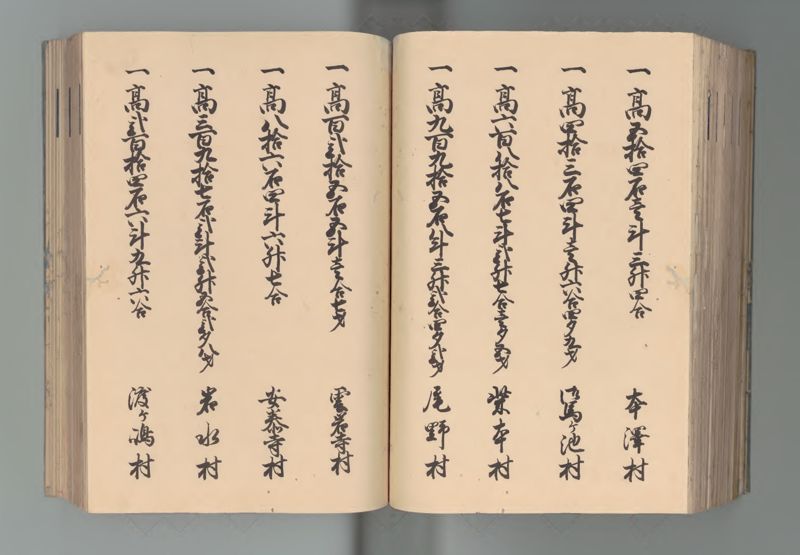 一 高五拾四石壱斗三升四合 本澤村
一 高四拾三石四斗壱升六合四夕九才 馬ヶ池村
一 高六百八拾八石七斗弐升七合壱夕五才 柴本村
一 高九百九拾五石八斗三升弐合四夕弐才 尾野村
一 高百弐拾五石五斗壱合七才 雲岩寺村
一 高八拾六石四斗六升七合 安泰寺村
一 高三百九拾七石弐斗弐升五合弐夕八才 岩水村
一 高弐百拾四石六斗九升六合 渡ヶ嶋村